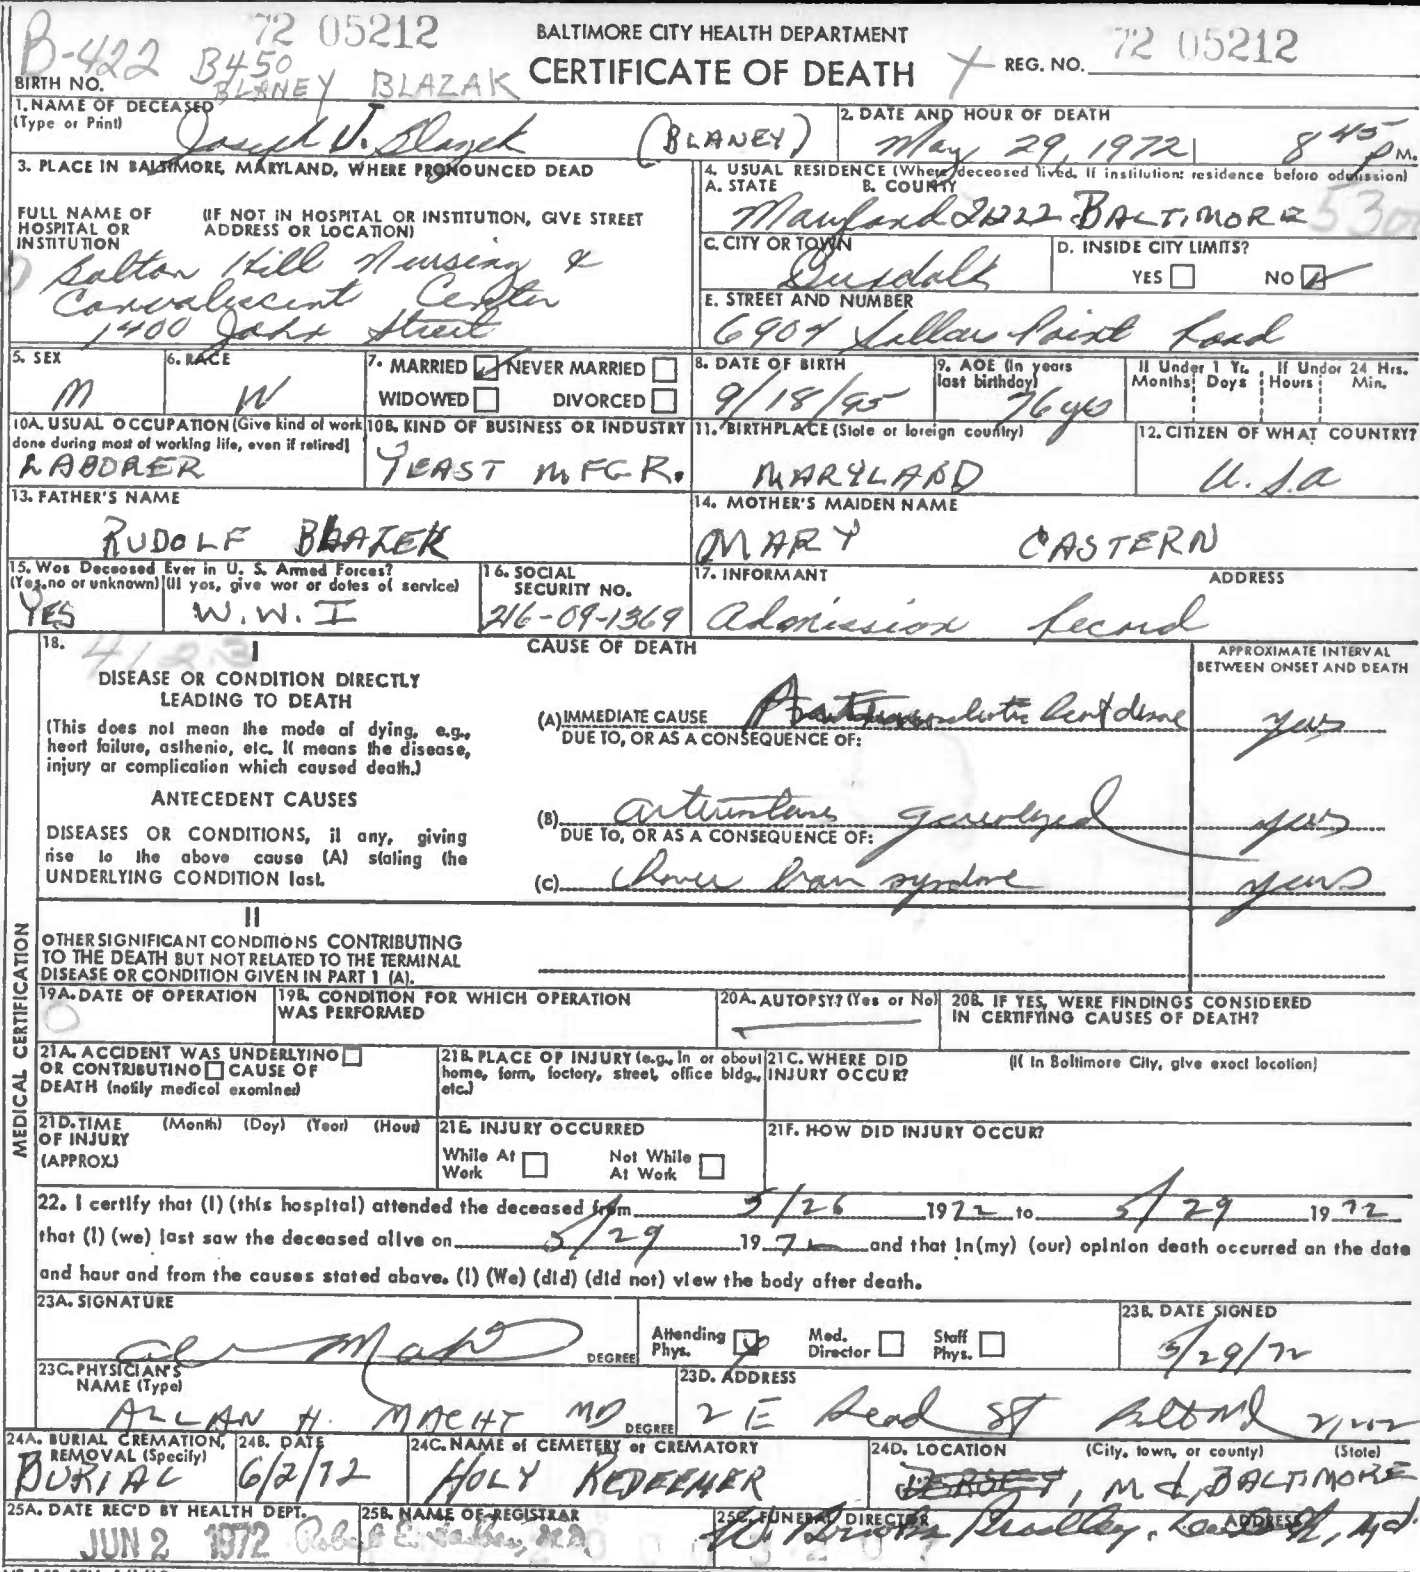 72 05212
BALTIMORE CITY HEALTH DEPARTMENT
72 05212
B-422 B450
BIRTH NO.
BLANEY BLAZAK
CERTIFICATE OF DEATH
REG. NO.
1. NAME OF DECEASED
(Type or Print)
Joseph J. Blazek (BLANEY)
2. DATE AND HOUR OF DEATH
May 29, 1972 8 45 P M.
3. PLACE IN BALTIMORE, MARYLAND, WHERE PRONOUNCED DEAD
FULL NAME OF HOSPITAL OR INSTITUTION
(IF NOT IN HOSPITAL OR INSTITUTION, GIVE STREET ADDRESS OR LOCATION)
Bolton Hill Nursing &
Convalescent Center
1400 John Street
4. USUAL RESIDENCE (Where deceased lived. If institution: residence before admission)
A. STATE B. COUNTY
Maryland 21222 BALTIMORE 5300
C. CITY OR TOWN
Dundalk
D. INSIDE CITY LIMITS?
YES NO
E. STREET AND NUMBER
6904 Sollers Point Road
5. SEX
M
6. RACE
W
7. MARRIED NEVER MARRIED
WIDOWED DIVORCED
8. DATE OF BIRTH
9/18/95
9. AGE (In years last birthday)
76 yrs
If Under 1 Yr. Months Days
If Under 24 Hrs. Hours Min.
10A. USUAL OCCUPATION (Give kind of work done during most of working life, even if retired)
LABORER
10B. KIND OF BUSINESS OR INDUSTRY
YEAST MFGR.
11. BIRTHPLACE (State or foreign country)
MARYLAND
12. CITIZEN OF WHAT COUNTRY?
U.S.A
13. FATHER'S NAME
RUDOLF BLAZEK
14. MOTHER'S MAIDEN NAME
MARY CASTERN
15. Was Deceased Ever in U. S. Armed Forces?
(Yes, no or unknown) (If yes, give war or dates of service)
YES W.W.I
16. SOCIAL SECURITY NO.
216-09-1369
17. INFORMANT ADDRESS
Admission Record
MEDICAL CERTIFICATION
18. 4123
I
DISEASE OR CONDITION DIRECTLY
LEADING TO DEATH
(This does not mean the mode of dying, e.g.,
heart failure, asthenia, etc. It means the disease,
injury or complication which caused death.)
ANTECEDENT CAUSES
DISEASES OR CONDITIONS, if any, giving
rise to the above cause (A) stating the
UNDERLYING CONDITION last.
CAUSE OF DEATH
APPROXIMATE INTERVAL
BETWEEN ONSET AND DEATH
(A) IMMEDIATE CAUSE heart disease years
DUE TO, OR AS A CONSEQUENCE OF:
(B) generalized years
DUE TO, OR AS A CONSEQUENCE OF:
(C) brain syndrome years
II
OTHER SIGNIFICANT CONDITIONS CONTRIBUTING
TO THE DEATH BUT NOT RELATED TO THE TERMINAL
DISEASE OR CONDITION GIVEN IN PART 1 (A).
19A. DATE OF OPERATION
0
19B. CONDITION FOR WHICH OPERATION WAS PERFORMED
20A. AUTOPSY? (Yes or No)
20B. IF YES, WERE FINDINGS CONSIDERED IN CERTIFYING CAUSES OF DEATH?
21A. ACCIDENT WAS UNDERLYING
OR CONTRIBUTING CAUSE OF
DEATH (notify medical examiner)
21B. PLACE OF INJURY (e.g., in or about home, farm, factory, street, office bldg., etc.)
21C. WHERE DID INJURY OCCUR?
(If in Baltimore City, give exact location)
21D. TIME OF INJURY (APPROX.)
(Month) (Day) (Year) (Hour)
21E. INJURY OCCURRED
While At Work Not While At Work
21F. HOW DID INJURY OCCUR?
22. I certify that (I) (this hospital) attended the deceased from 5/26 1972 to 5/29 1972
that (I) (we) last saw the deceased alive on 5/29 1972 and that in (my) (our) opinion death occurred on the date
and hour and from the causes stated above. (I) (We) (did) (did not) view the body after death.
23A. SIGNATURE
DEGREE
Attending Phys. Med. Director Staff Phys.
23B. DATE SIGNED
5/29/72
23C. PHYSICIAN'S NAME (Type)
ALLAN H. MACHT MD DEGREE
23D. ADDRESS
2 E Read St Balt Md 21202
24A. BURIAL CREMATION, REMOVAL (Specify)
BURIAL
24B. DATE
6/2/72
24C. NAME of CEMETERY or CREMATORY
HOLY REDEEMER
24D. LOCATION (City, town, or county) (State)
, Md, BALTIMORE
25A. DATE REC'D BY HEALTH DEPT.
JUN 2 1972
25B. NAME OF REGISTRAR
Robert E. Farber, M.D.
25C. FUNERAL DIRECTOR ADDRESS
Bradley, Md.